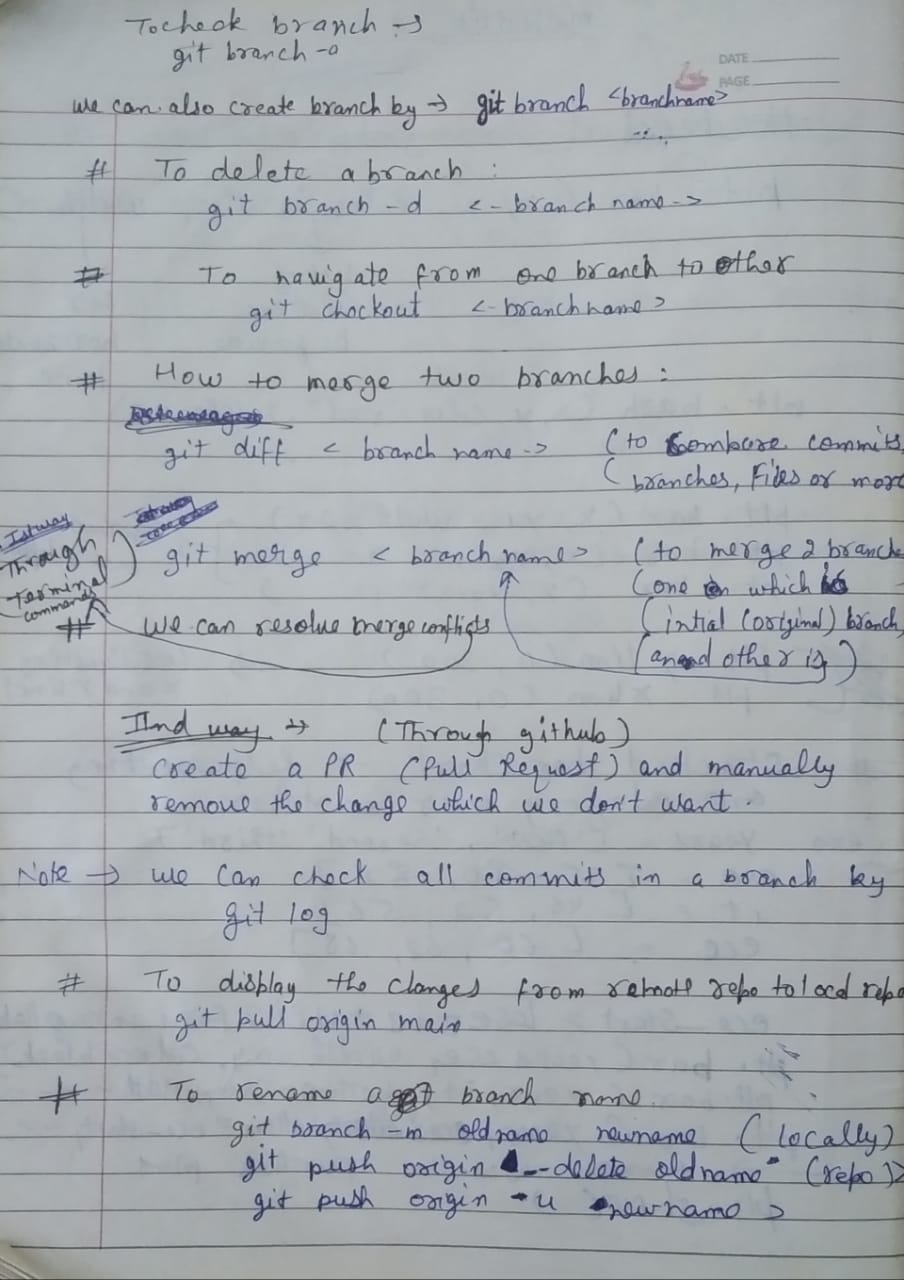 To check branch →
git branch -a
DATE
PAGE
we can also create branch by → git branch <branchname>
# To delete a branch :
git branch -d <- branch name ->
# To navigate from one branch to other
git chockout <- branchname >
# How to merge two branches :
git diff < branch name -> (to combure commits,
( branches, Files or more
Ist way
Through
Terminal
commands
git merge < branch name > (to merge 2 branche
(one on which is
(intial (original) branch,
(and other is)
# we can resolve merge conflicts
IInd way → (Through github)
create a PR (Pull Request) and manually
remove the change which we don't want .
Note → we can check all commits in a branch by
git log
# To display the changes from remote repo to local repo
git pull origin main
# To rename a branch name.
git branch -m oldname newname (locally)
git push origin --delete oldname (repo)>
git push origin -u newname >